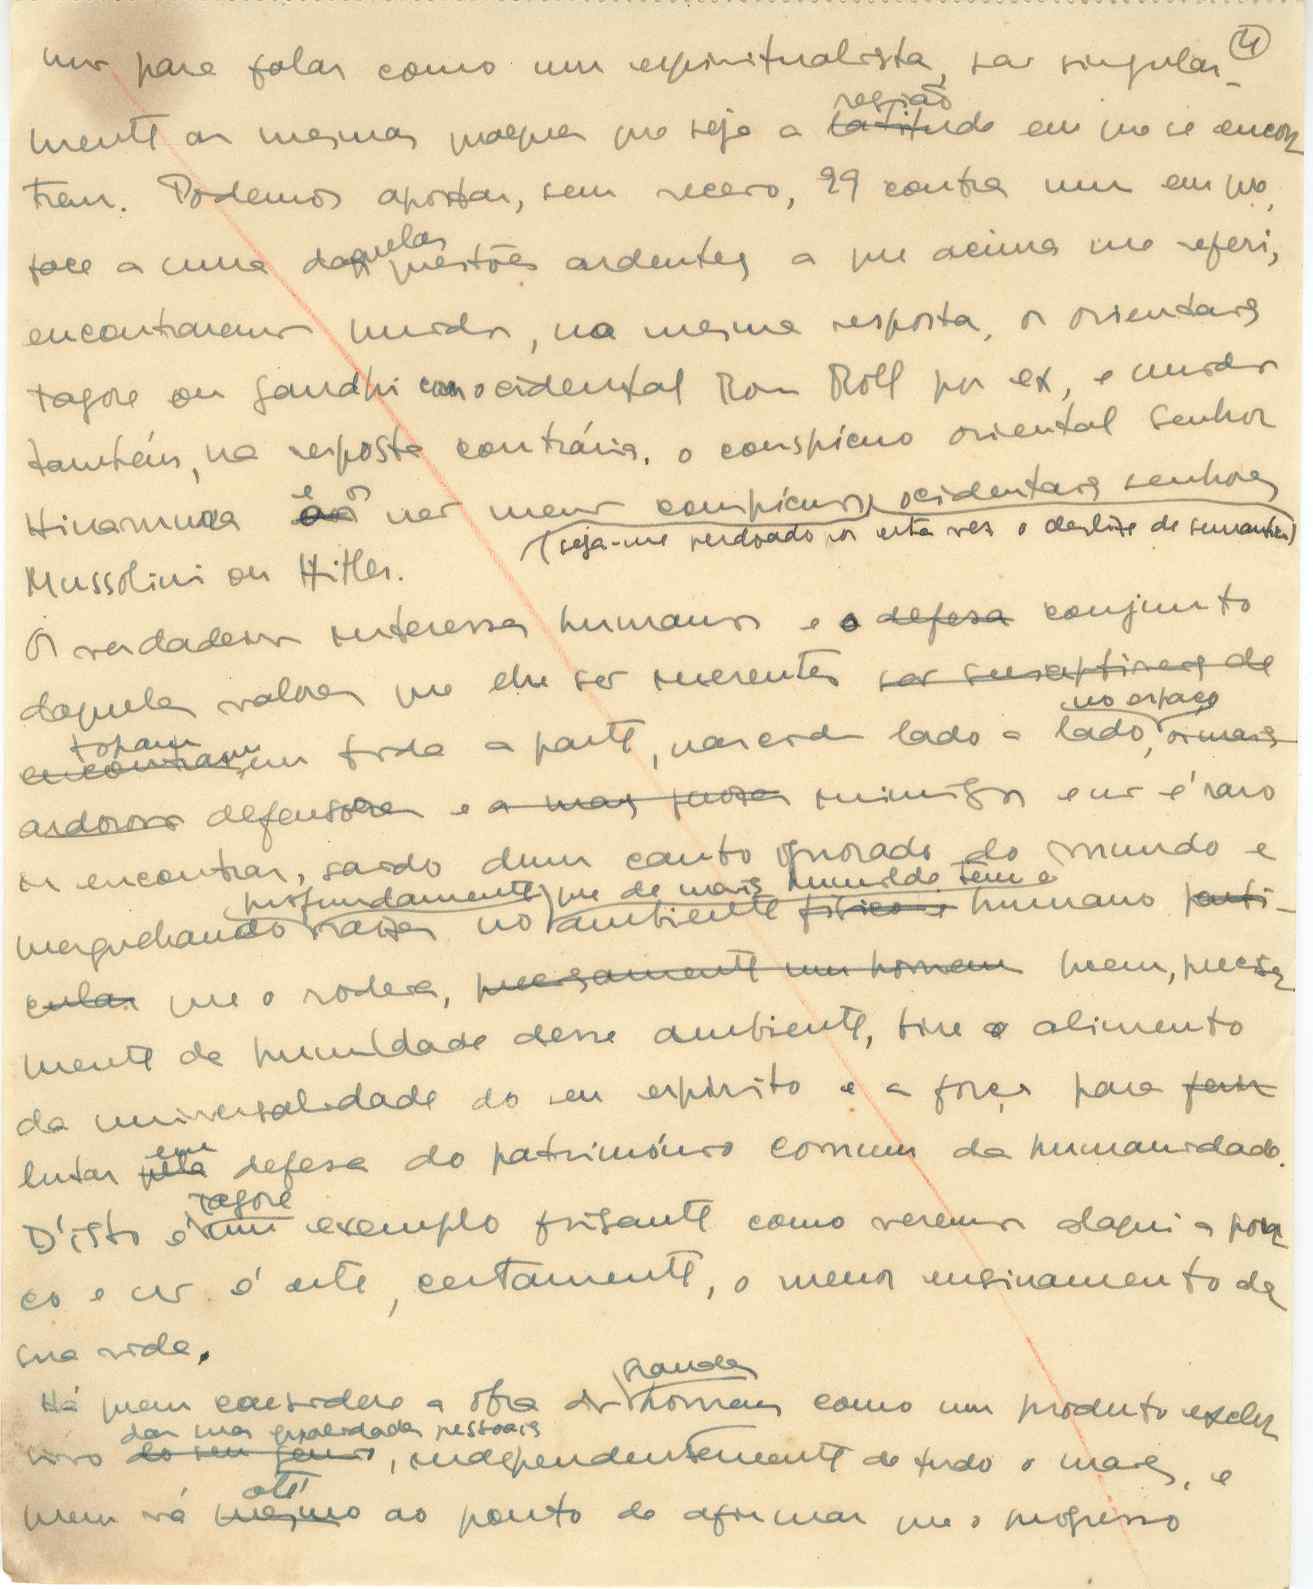 4
nos para falar como um espiritualista, são singular-
mente as mesmas qualquer que seja a latitude região em que se encon
tram. Podemos apostar, sem receio, 99 contra um em que,
face a uma daquelas questões ardentes a que acima me referi,
encontraremos unidos, na mesma resposta, os orientais
Tagore ou Gandhi com o cidental Rom Roll por ex, e unidos
também, na resposta contrária, o conspícuo oriental senhor
Hiranuma e os não menos conspícuos, ocidentais senhores
(seja-me perdoado por esta vez o deslize de semantica)
Mussolini ou Hitler.
Os verdadeiros interesses humanos e o defesa conjunto
daqueles valores que lhe são inerentes são susceptiveis de
encontram topam em toda a parte, nascidos lado a lado no espaço, os mais
ardorosos defensores e inimigos e não é raro
os encontrar, saido dum canto ignorado do mundo e
mergulhando profundamente raizes no que de mais humilde tem o ambiente fisico e humano parti-
cular que o rodeia, precisamente um homem quem, precisa
mente da humildade desse ambiente, tire o alimento
da universalidade do seu espírito e a força para fazer
lutar pela em defesa do património comum da humanidade.
D'isto é Tagore um exemplo frisante como veremos daqui a pou
co e não é este, certamente, o menor ensinamento da
sua vida.
Há quem considere a obra dos grandes homens como um produto exclu
sivo do seu genio das suas qualidades pessoais, independentemente de tudo o mais, e
quem vá mesmo até ao ponto de afirmar que o progresso